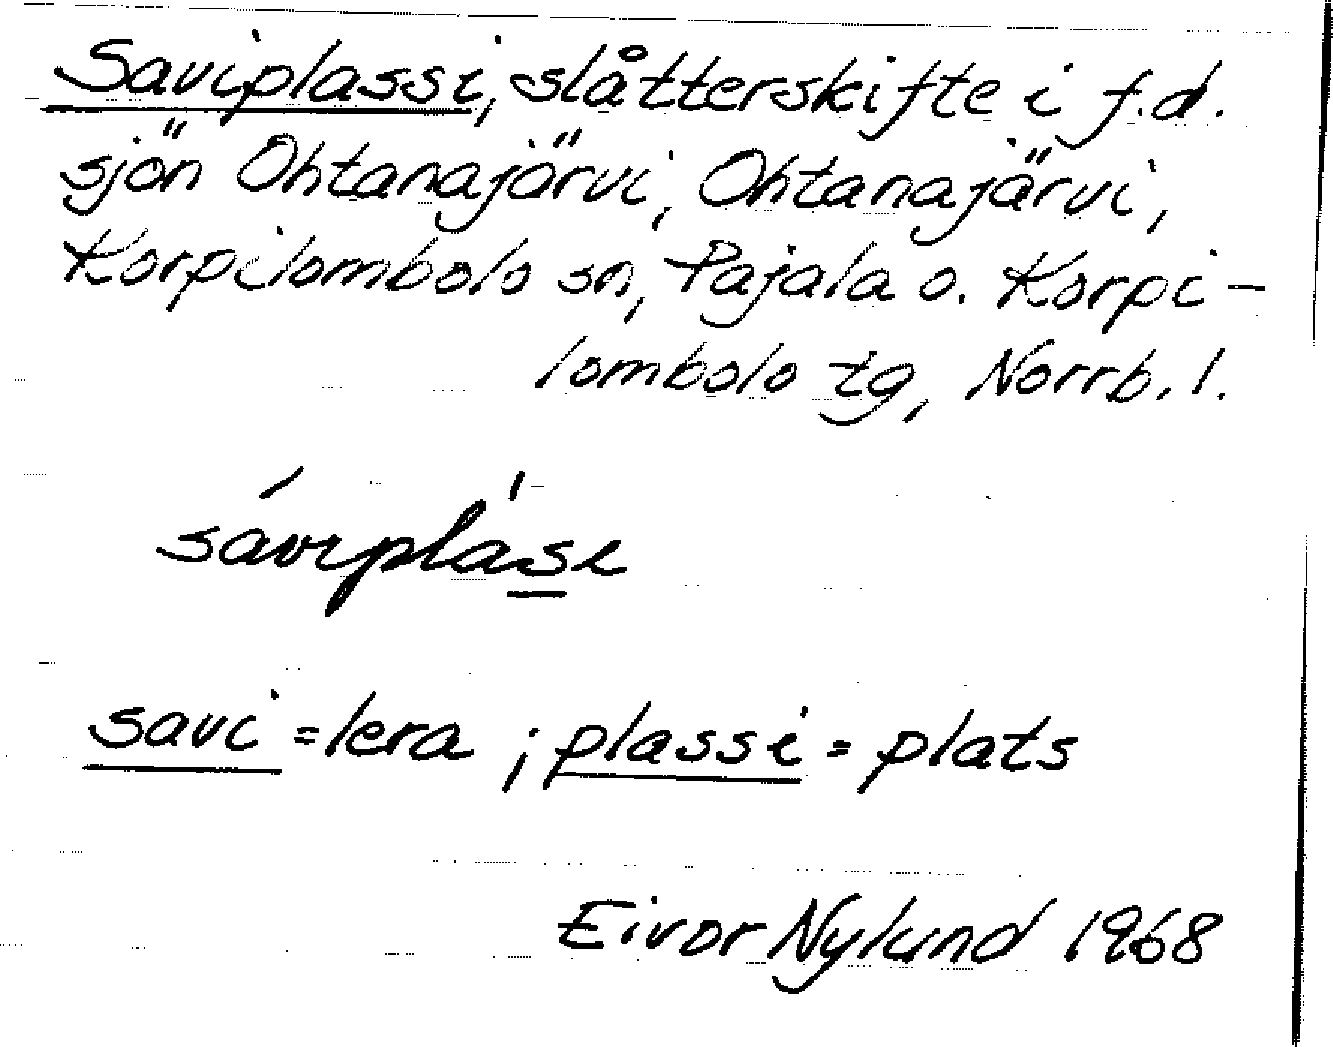 Saviplassi, slåtterskifte i f.d.
sjön Ohtanajärvi, Ohtanajärvi,
Korpilombolo sn, Pajala o. Korpi-
lombolo tg, Norrb. l.
savi = lera ; plassi = plats
Eivor Nylund 1968